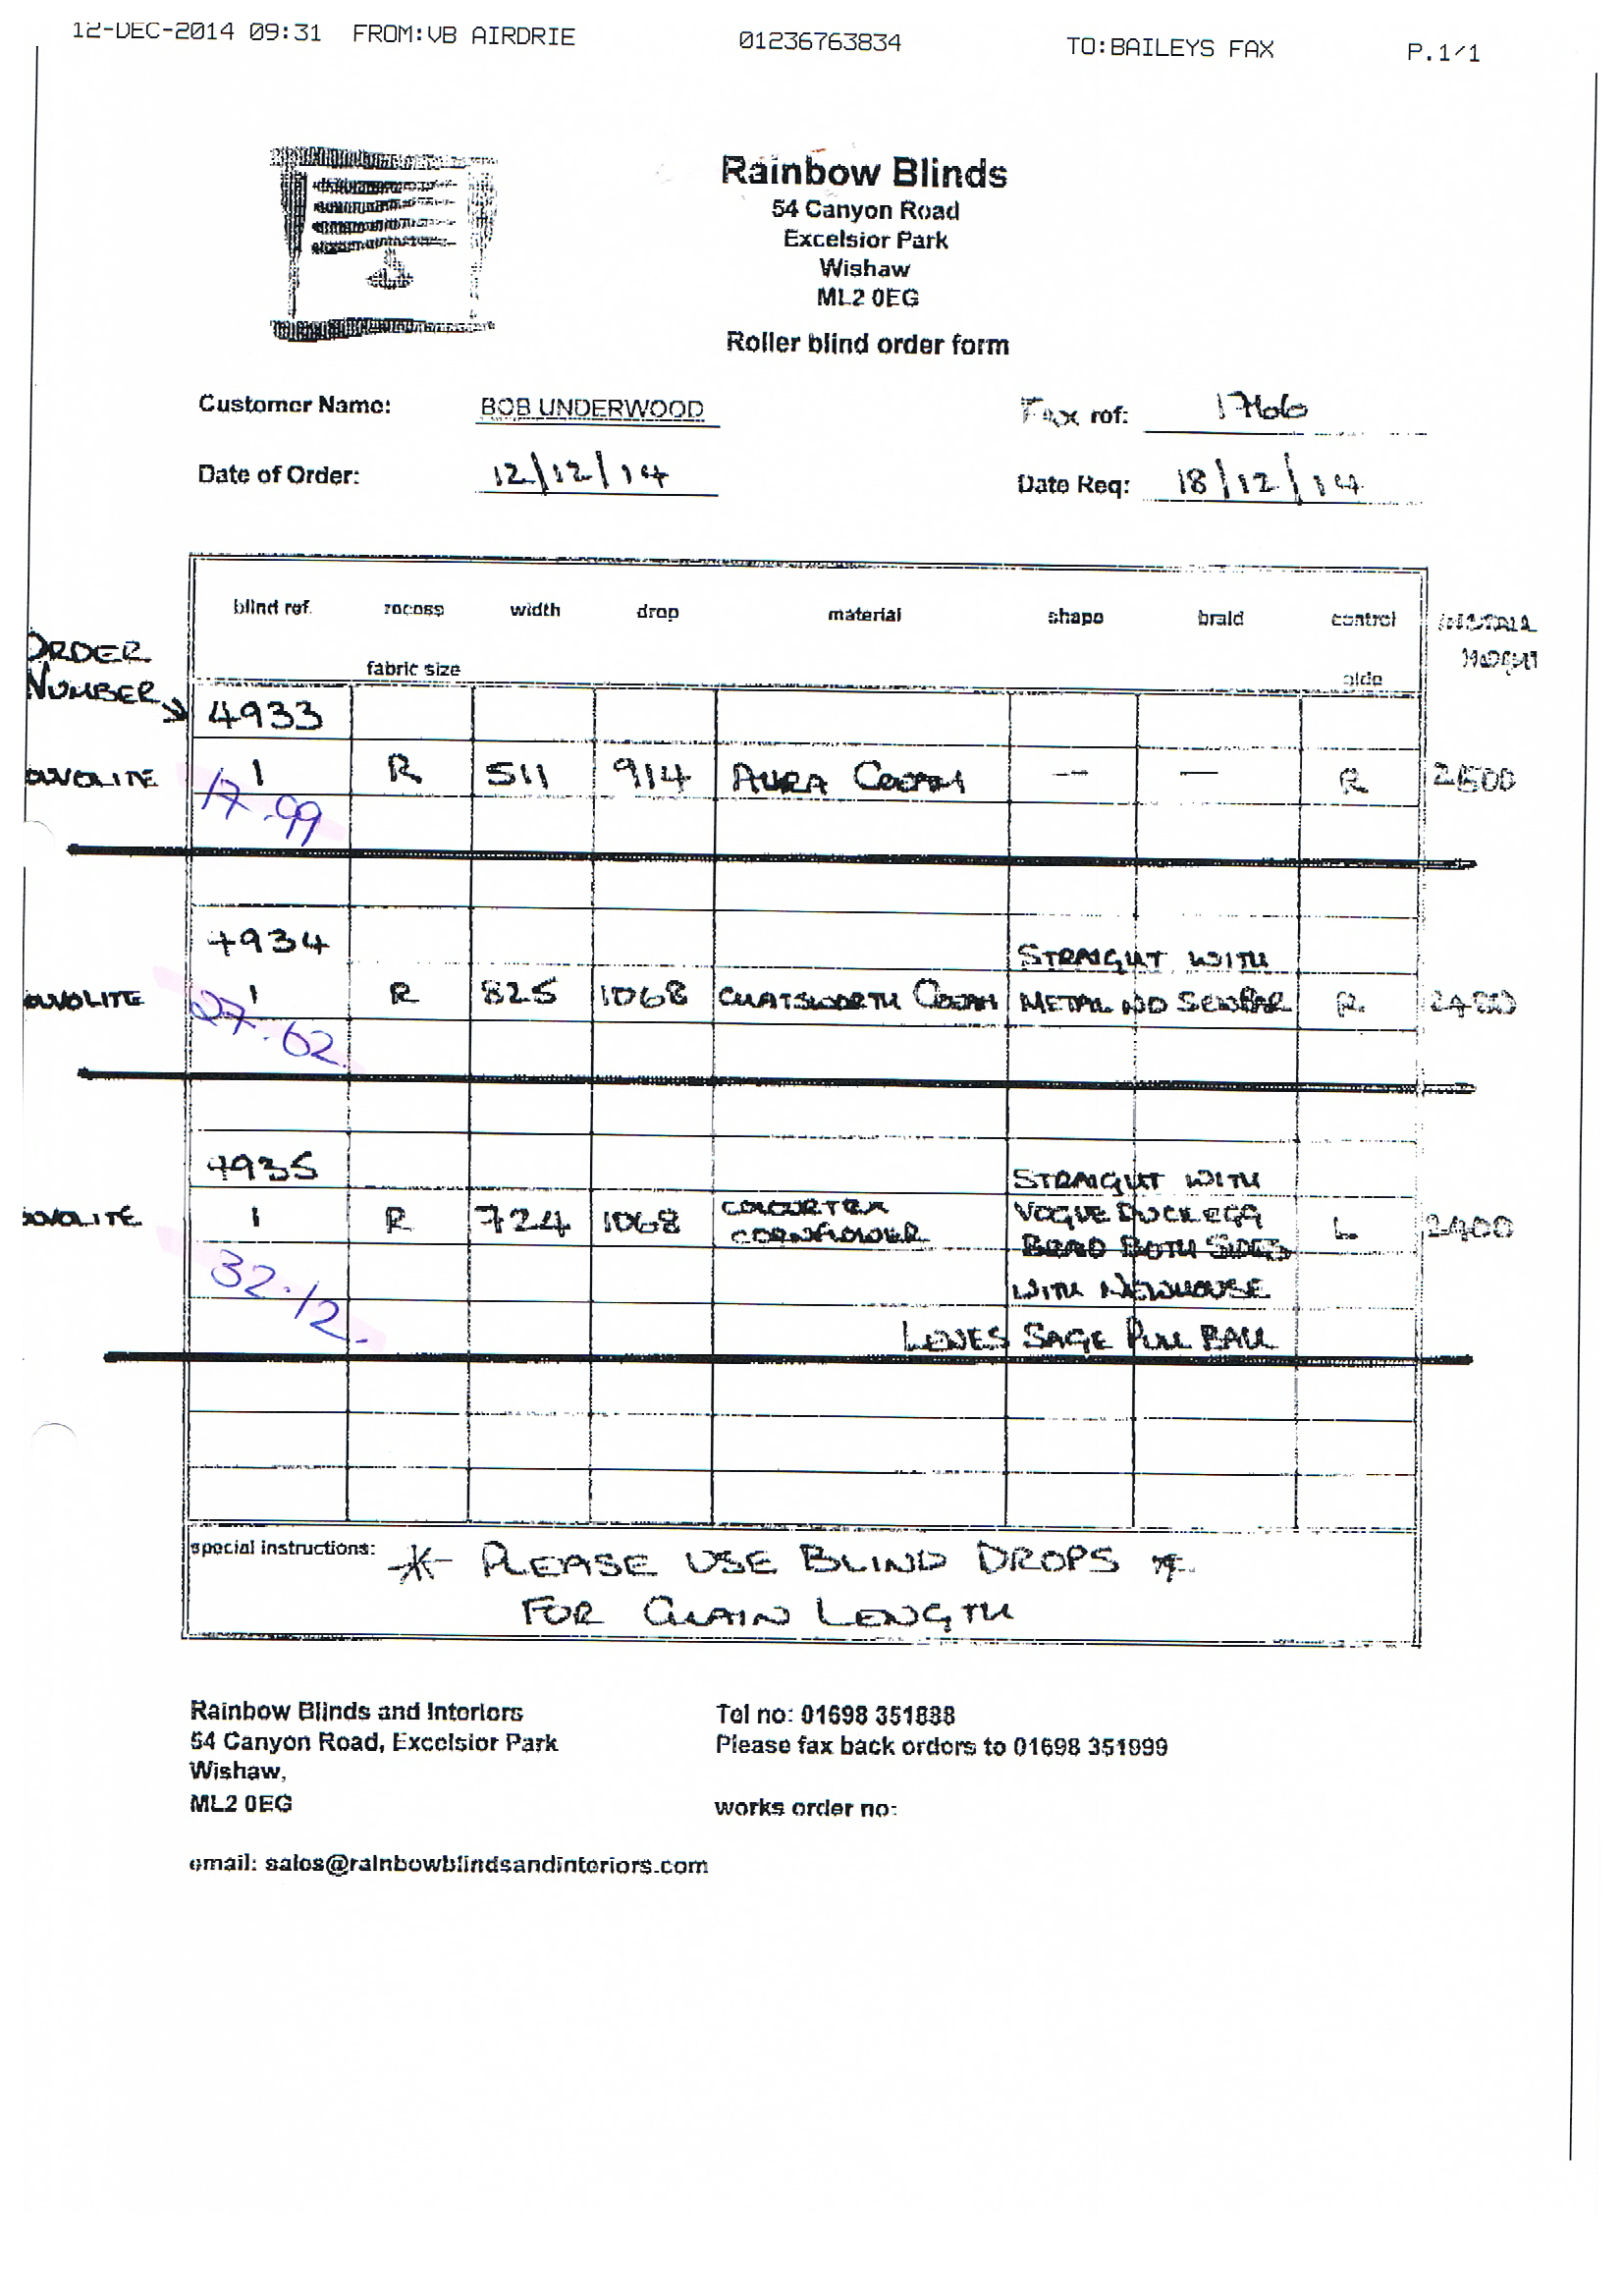 12-DEC-2014 09:31 FROM:VB AIRDRIE 01236763834 TO:BAILEYS FAX P.1/1
Rainbow Blinds
54 Canyon Road
Excelsior Park
Wishaw
ML2 0EG
Roller blind order form
Customer Name: BOB UNDERWOOD Fax ref: 1766
Date of Order: 12/12/14 Date Req: 18/12/14
blind ref. recess width drop material shape braid control
fabric size side
ORDER
NUMBER
4933
1 R 511 914 AURA CREAM — — R 2500
17.99
4934 STRAIGHT WITH
1 R 825 1068 CHATSWORTH CREAM METAL NO SEWBAR R
27.62
4935 STRAIGHT WITH
1 R 724 1068 COLOURTEX CORNFLOWER VOGUE DUCKEGG L 2400
BRAID BOTH SIDES
32.12 WITH NEWHOUSE
SAGE PULL BALL
special instructions: * PLEASE USE BLIND DROPS *
FOR CHAIN LENGTH
Rainbow Blinds and Interiors Tel no: 01698 351888
54 Canyon Road, Excelsior Park Please fax back orders to 01698 351999
Wishaw,
ML2 0EG works order no:
email: sales@rainbowblindsandinteriors.com